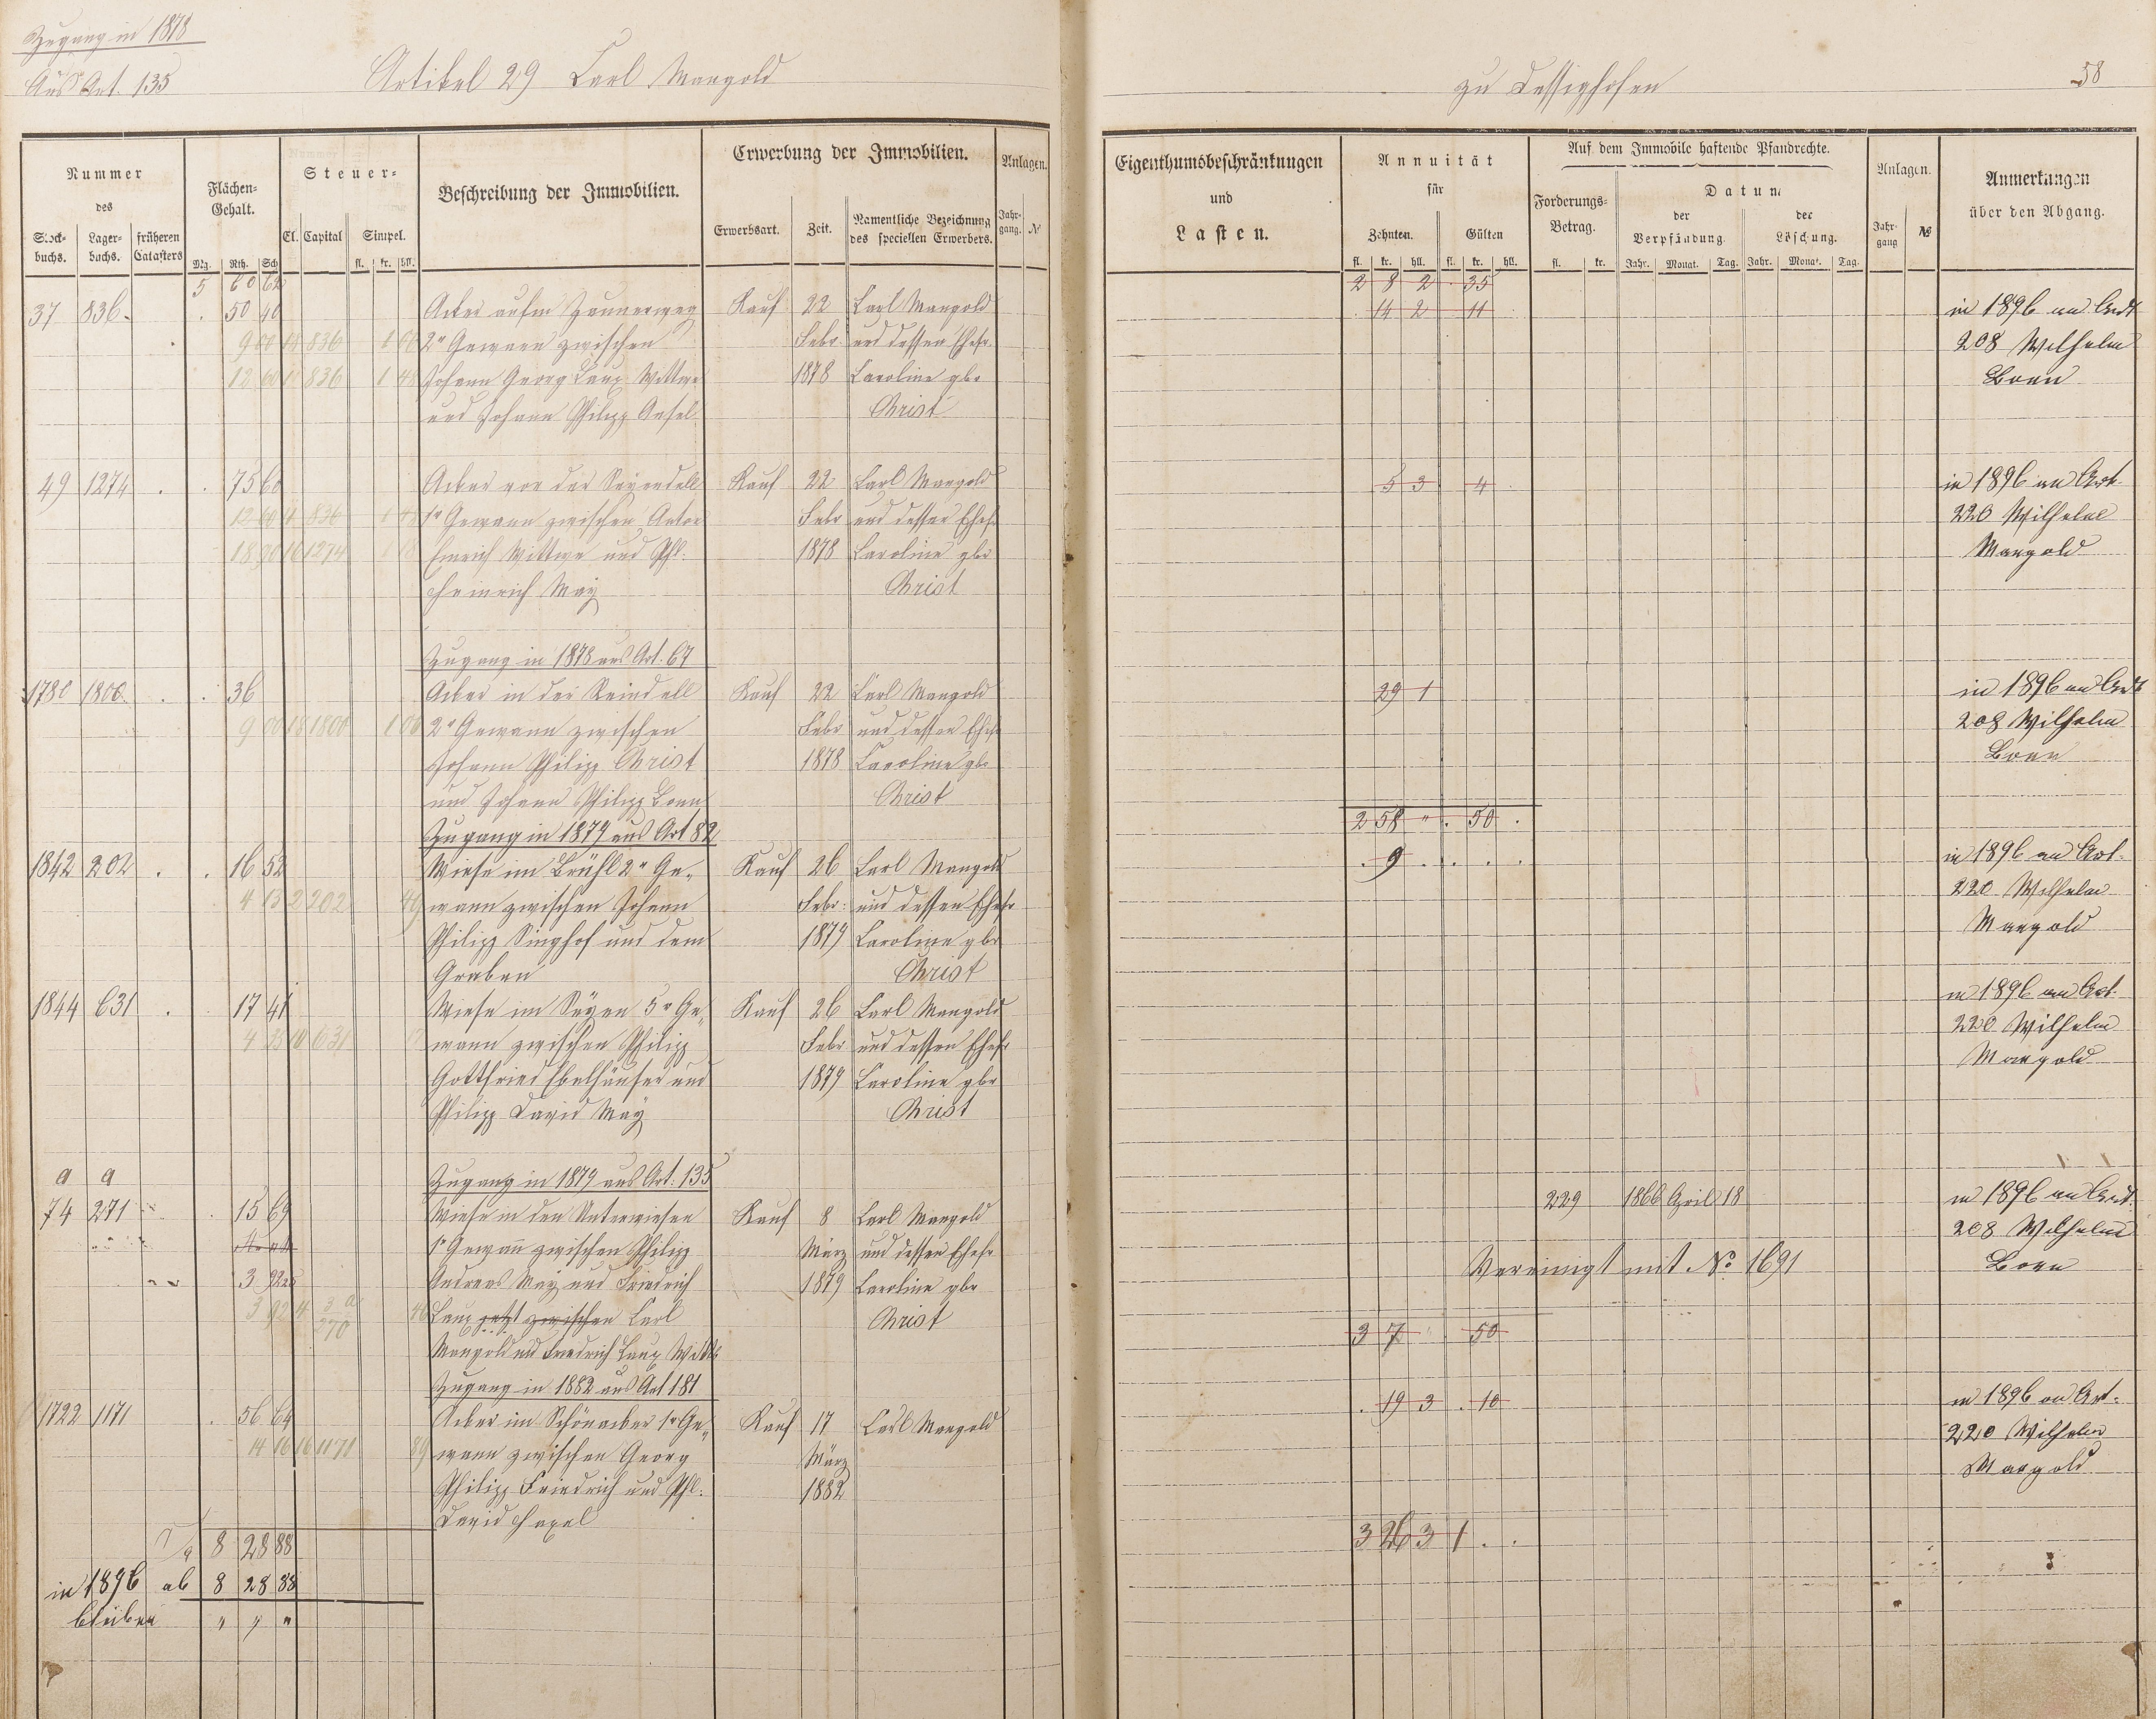 Zugang in 1878
Aus Art. 135
Artikel 29 Carl Mangold
zu Dessighofen
58
Nummer
des
Stock-
buchs.
Lager-
buchs.
früheren
Catasters
Flächen-
Gehalt.
Mg. Rth. Sch.
Steuer-
Cl. Capital Simpel.
fl. kr. hll.
Beschreibung der Immobilien.
Erwerbung der Immobilien.
Erwerbsart. Zeit. Namentliche Bezeichnung
des speciellen Erwerbers.
Anlagen.
Jahr-
gang. №
Eigenthumsbeschränkungen
und
Lasten.
Annuität
für
Zehnten. Gülten
fl. kr. hll. fl. kr. hll.
Auf dem Immobile haftende Pfandrechte.
Forderungs-
Betrag.
fl. kr.
Datum
der
Verpfändung
der
Löschung.
Jahr. Monat. Tag. Jahr. Monat. Tag.
Anlagen.
Jahr-
gang №
Anmerkungen
über den Abgang.
5 60 62 2 8 2 . 35
37 836 . 50 40 Acker aufm Zaunerweg Kauf 22 Carl Mangold 14 2 11 in 1896 an Art
9 00 18 836 1 06 2r Gewann zwischen Febr. und dessen Ehefr. 208 Wilhelm
12 60 836 1 48 Johann Georg Laux Wittwe 1878 Caroline gbr Bonn
und Johann Philipp Christ
49 1274 . . 75 60 Acker vor der Kauf 22 Carl Mangold 5 3 4 in 1896 an Art.
12 60 4 836 1r Gewann zwischen Anton Febr und dessen Ehefr 220 Wilhelm
18 90 16 1274 1 18 Emrich Wittwe und Phl. 1878 Caroline gbr Mangold
Heinrich May Christ
Zugang in 1878 aus Art. 67
1780 1800 . . 36 Acker in der Reindell Kauf 22 Carl Mangold 29 1 in 1896 an Art
9 00 18 1800 1 06 2r Gewann zwischen Febr und dessen Ehefr 208 Wilhelm
Johann Philipp Christ 1878 Caroline gbr Bonn
und Johann Philipp Bonn Christ
2 58 " . 50 .
Zugang in 1879 aus Art 82
1842 202 . . 16 52 Wiese im Brühl 2r Ge- Kauf 26 Carl Mangold . 9 . . . . in 1896 an Art.
4 13 2 202 49 wann zwischen Johann Febr. und dessen Ehefr 220 Wilhelm
Philipp Singhof und dem 1879 Caroline gbr Mangold
Graben Christ
1844 631 . 17 41 Wiese im Seyen 5r Ge- Kauf 26 Carl Mangold in 1896 an Art.
4 35 10 631 wann zwischen Philipp Febr und dessen Ehefr 220 Wilhelm
Gottfried Ebelhäuser und 1879 Caroline gbr Mangold
Philipp David May Christ
Zugang in 1879 aus Art. 135
a a
74 271 . 15 69 Wiese in den Unterwiesen Kauf 8 Carl Mangold 229 1866 April 18 in 1896 an Art.
1r Gewann zwischen Philipp März und dessen Ehefr 208 Wilhelm
3 92 25 Andreas May und Friedrich 1879 Caroline gbr Vereinigt mit No 1691 Bonn
3 92 4 3 a/270 46 Laux jetzt zwischen Carl Christ
Mangold und Friedrich Laux Wittb
3 7 " 50
Zugang in 1882 aus Art 181
1722 1171 . 56 64 Acker im Schönacker 1r Ge- Kauf 17 Carl Mangold . 19 3 . 10 in 1896 an Art.
14 16 16 1171 89 wann zwischen Georg März 220 Wilhelm
Philipp Friedrich und Phl. 1882 Mangold
David Hasel
8 28 88 3 26 3 1 . .
in 1896 ab 8 28 88
bleiben " " "